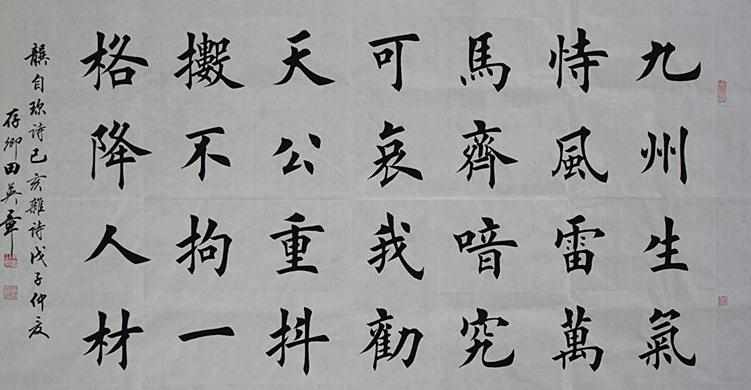 九州生氣
恃風雷萬
馬齊喑究
可哀我勸
天公重抖
擻不拘一
格降人材
龔自珎詩己亥雜詩戊子仲夏
存卿田英章